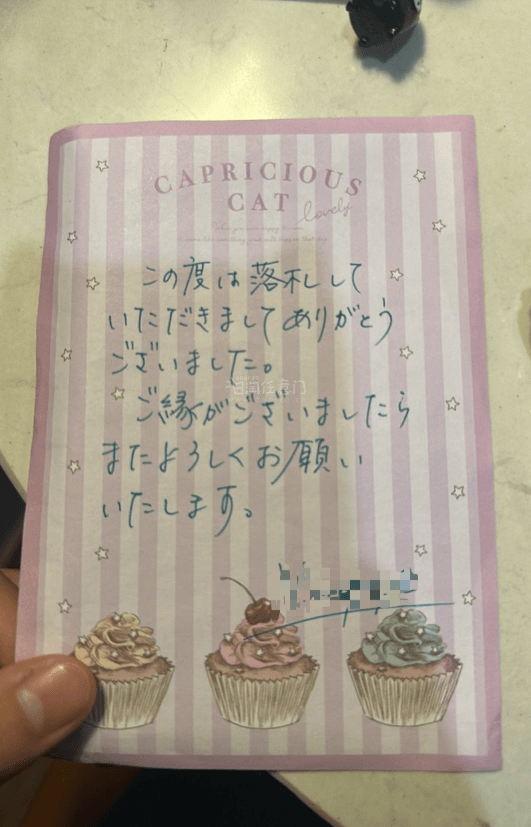 CAPRICIOUS
CAT
lovely
この度は落札して
いただきましてありがとう
ございました。
ご縁がございましたら
またよろしくお願い
いたします。